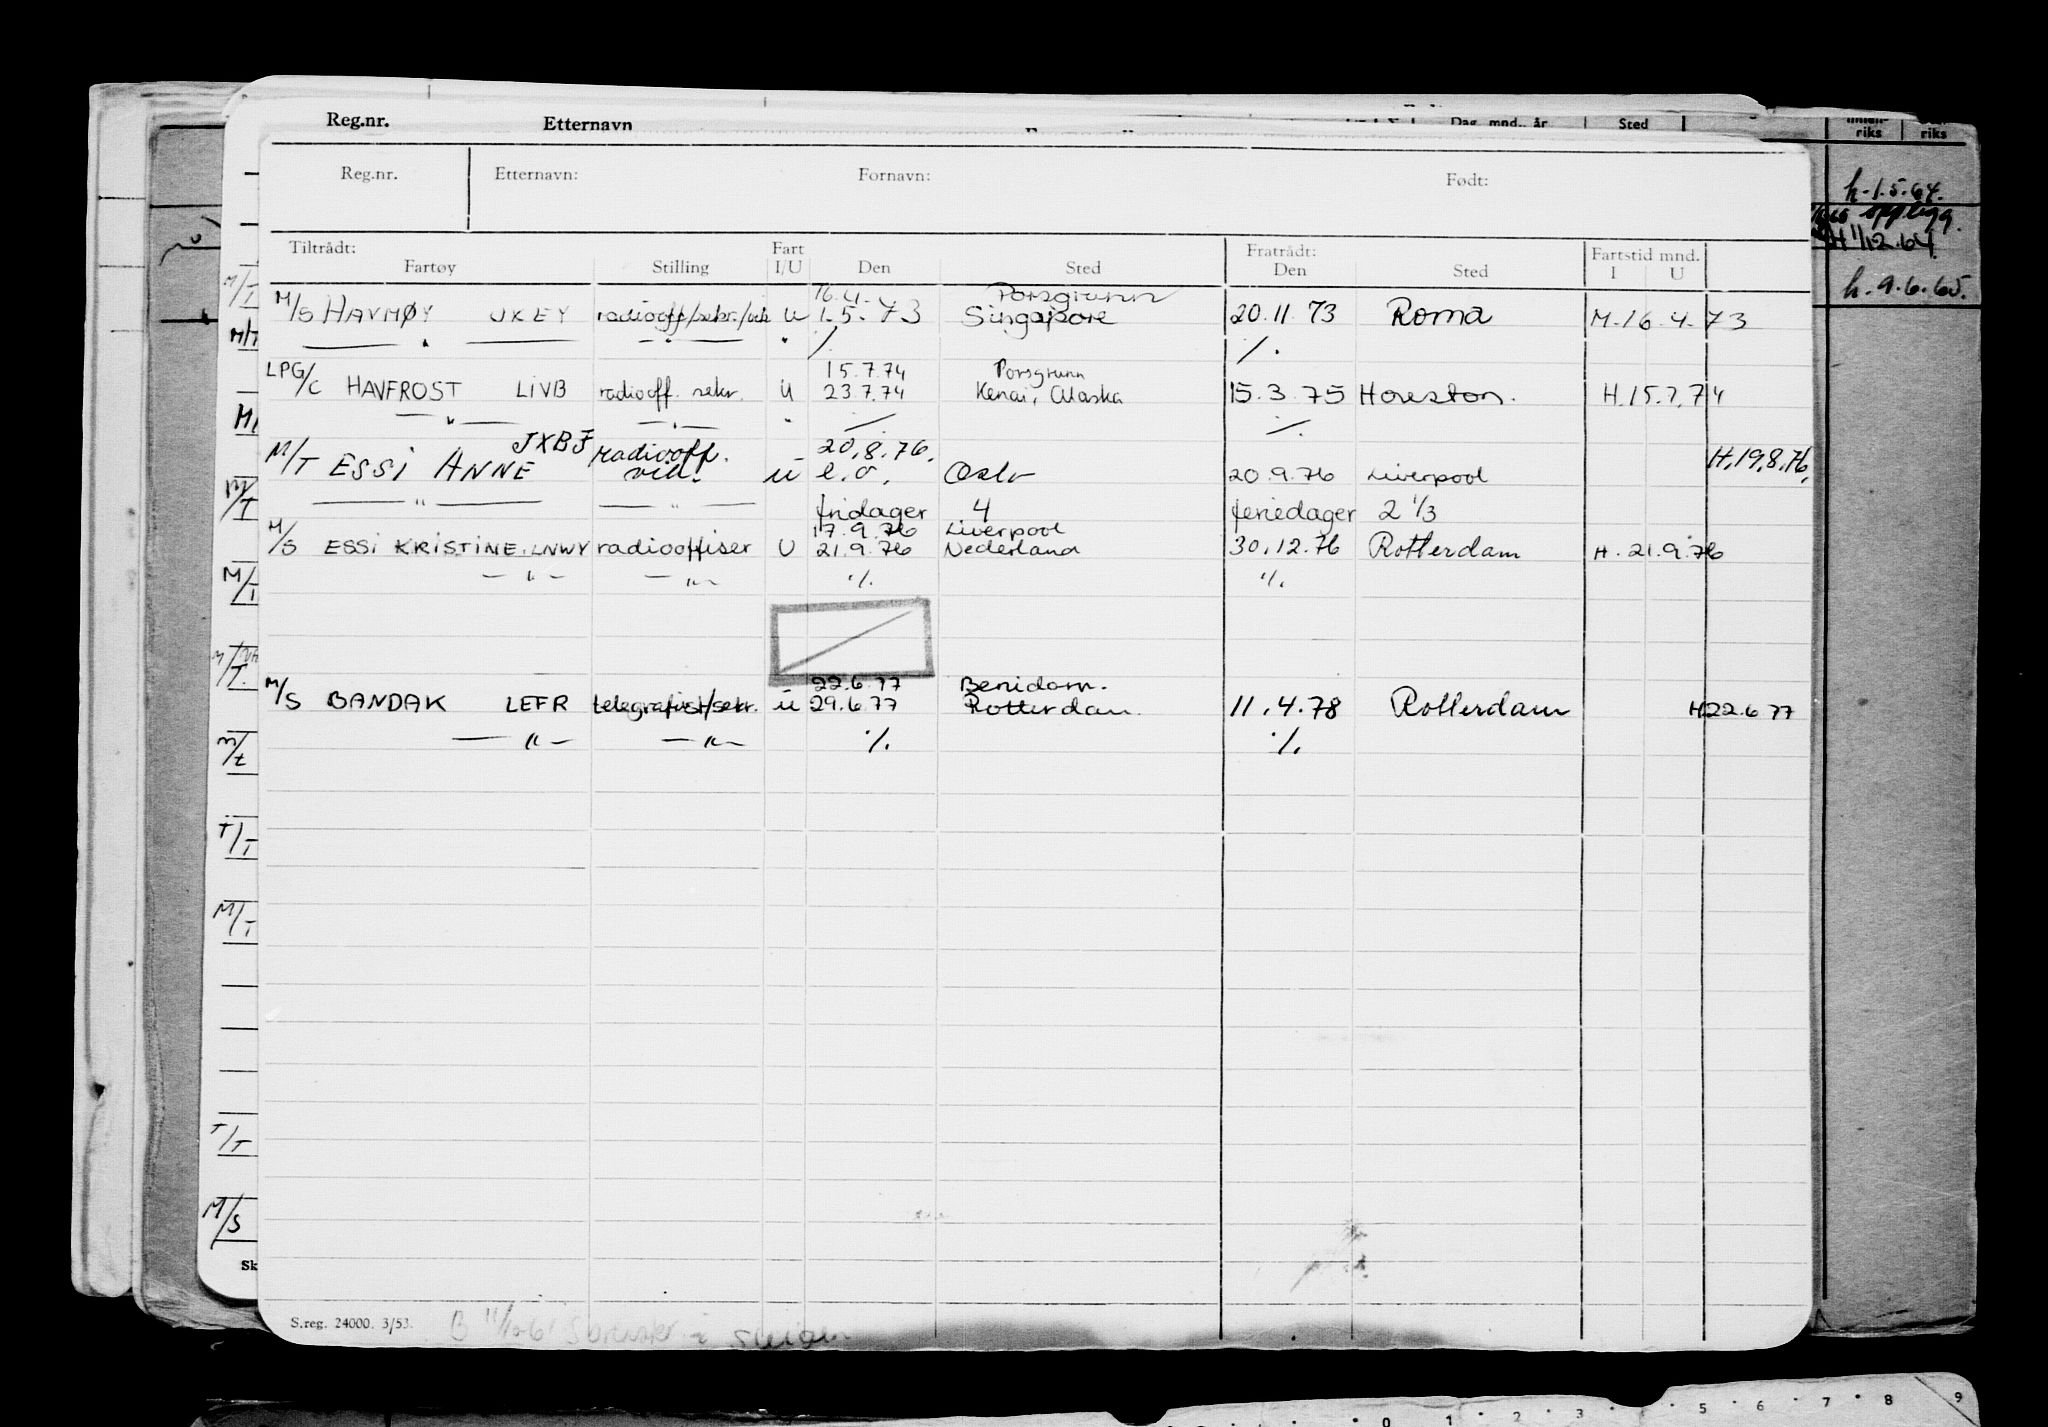 Reg.nr. Etternavn Dag, mnd., år Sted riks riks
Reg.nr. Etternavn: Fornavn: Født:
h. 1.5.64.
opplegg.
H 1/12.64
h. 9.6.65.
Tiltrådt: Fart Fratrådt: Fartstid mnd.
Fartøy Stilling I/U Den Sted Den Sted I U
16.4. Porsgrunn
M/S HAVMØY JXEY radiooff/sekr./vik U 1.5.73 Singapore 20.11.73 Roma M.16.4.73
— " — — " — " ⁒ ⁒
15.7.74 Porsgrunn
LPG/C HAVFROST LIVB radiooff. sekr. U 23.7.74 Kenai, Alaska 15.3.75 Houston. H.15.7.74
— " — — " — " ⁒ ⁒
JXBJ radiooff. 20.8.76. H.19.8.76.
M/T ESSI ANNE vik. U e.o. Oslo 20.9.76 Liverpool
— " — — " — fridager 4 feriedager 2 1/3
17.9.76 Liverpool
M/S ESSI KRISTINE. LNWY radiooffiser U 21.9.76 Nederland 30.12.76 Rotterdam H. 21.9.76
— " — — " — ⁒ ⁒
22.6.77 Benidorm.
M/S BANDAK LEFR telegrafist/sekr. U 29.6.77 Rotterdam. 11.4.78 Rotterdam H22.6.77
— " — — " — ⁒ ⁒
M/T
M/T
M/T
T/T
M/T
T/T
M/S
Sk
S.reg. 24000. 3/53.
0 1 2 3 5 6 7 8 9